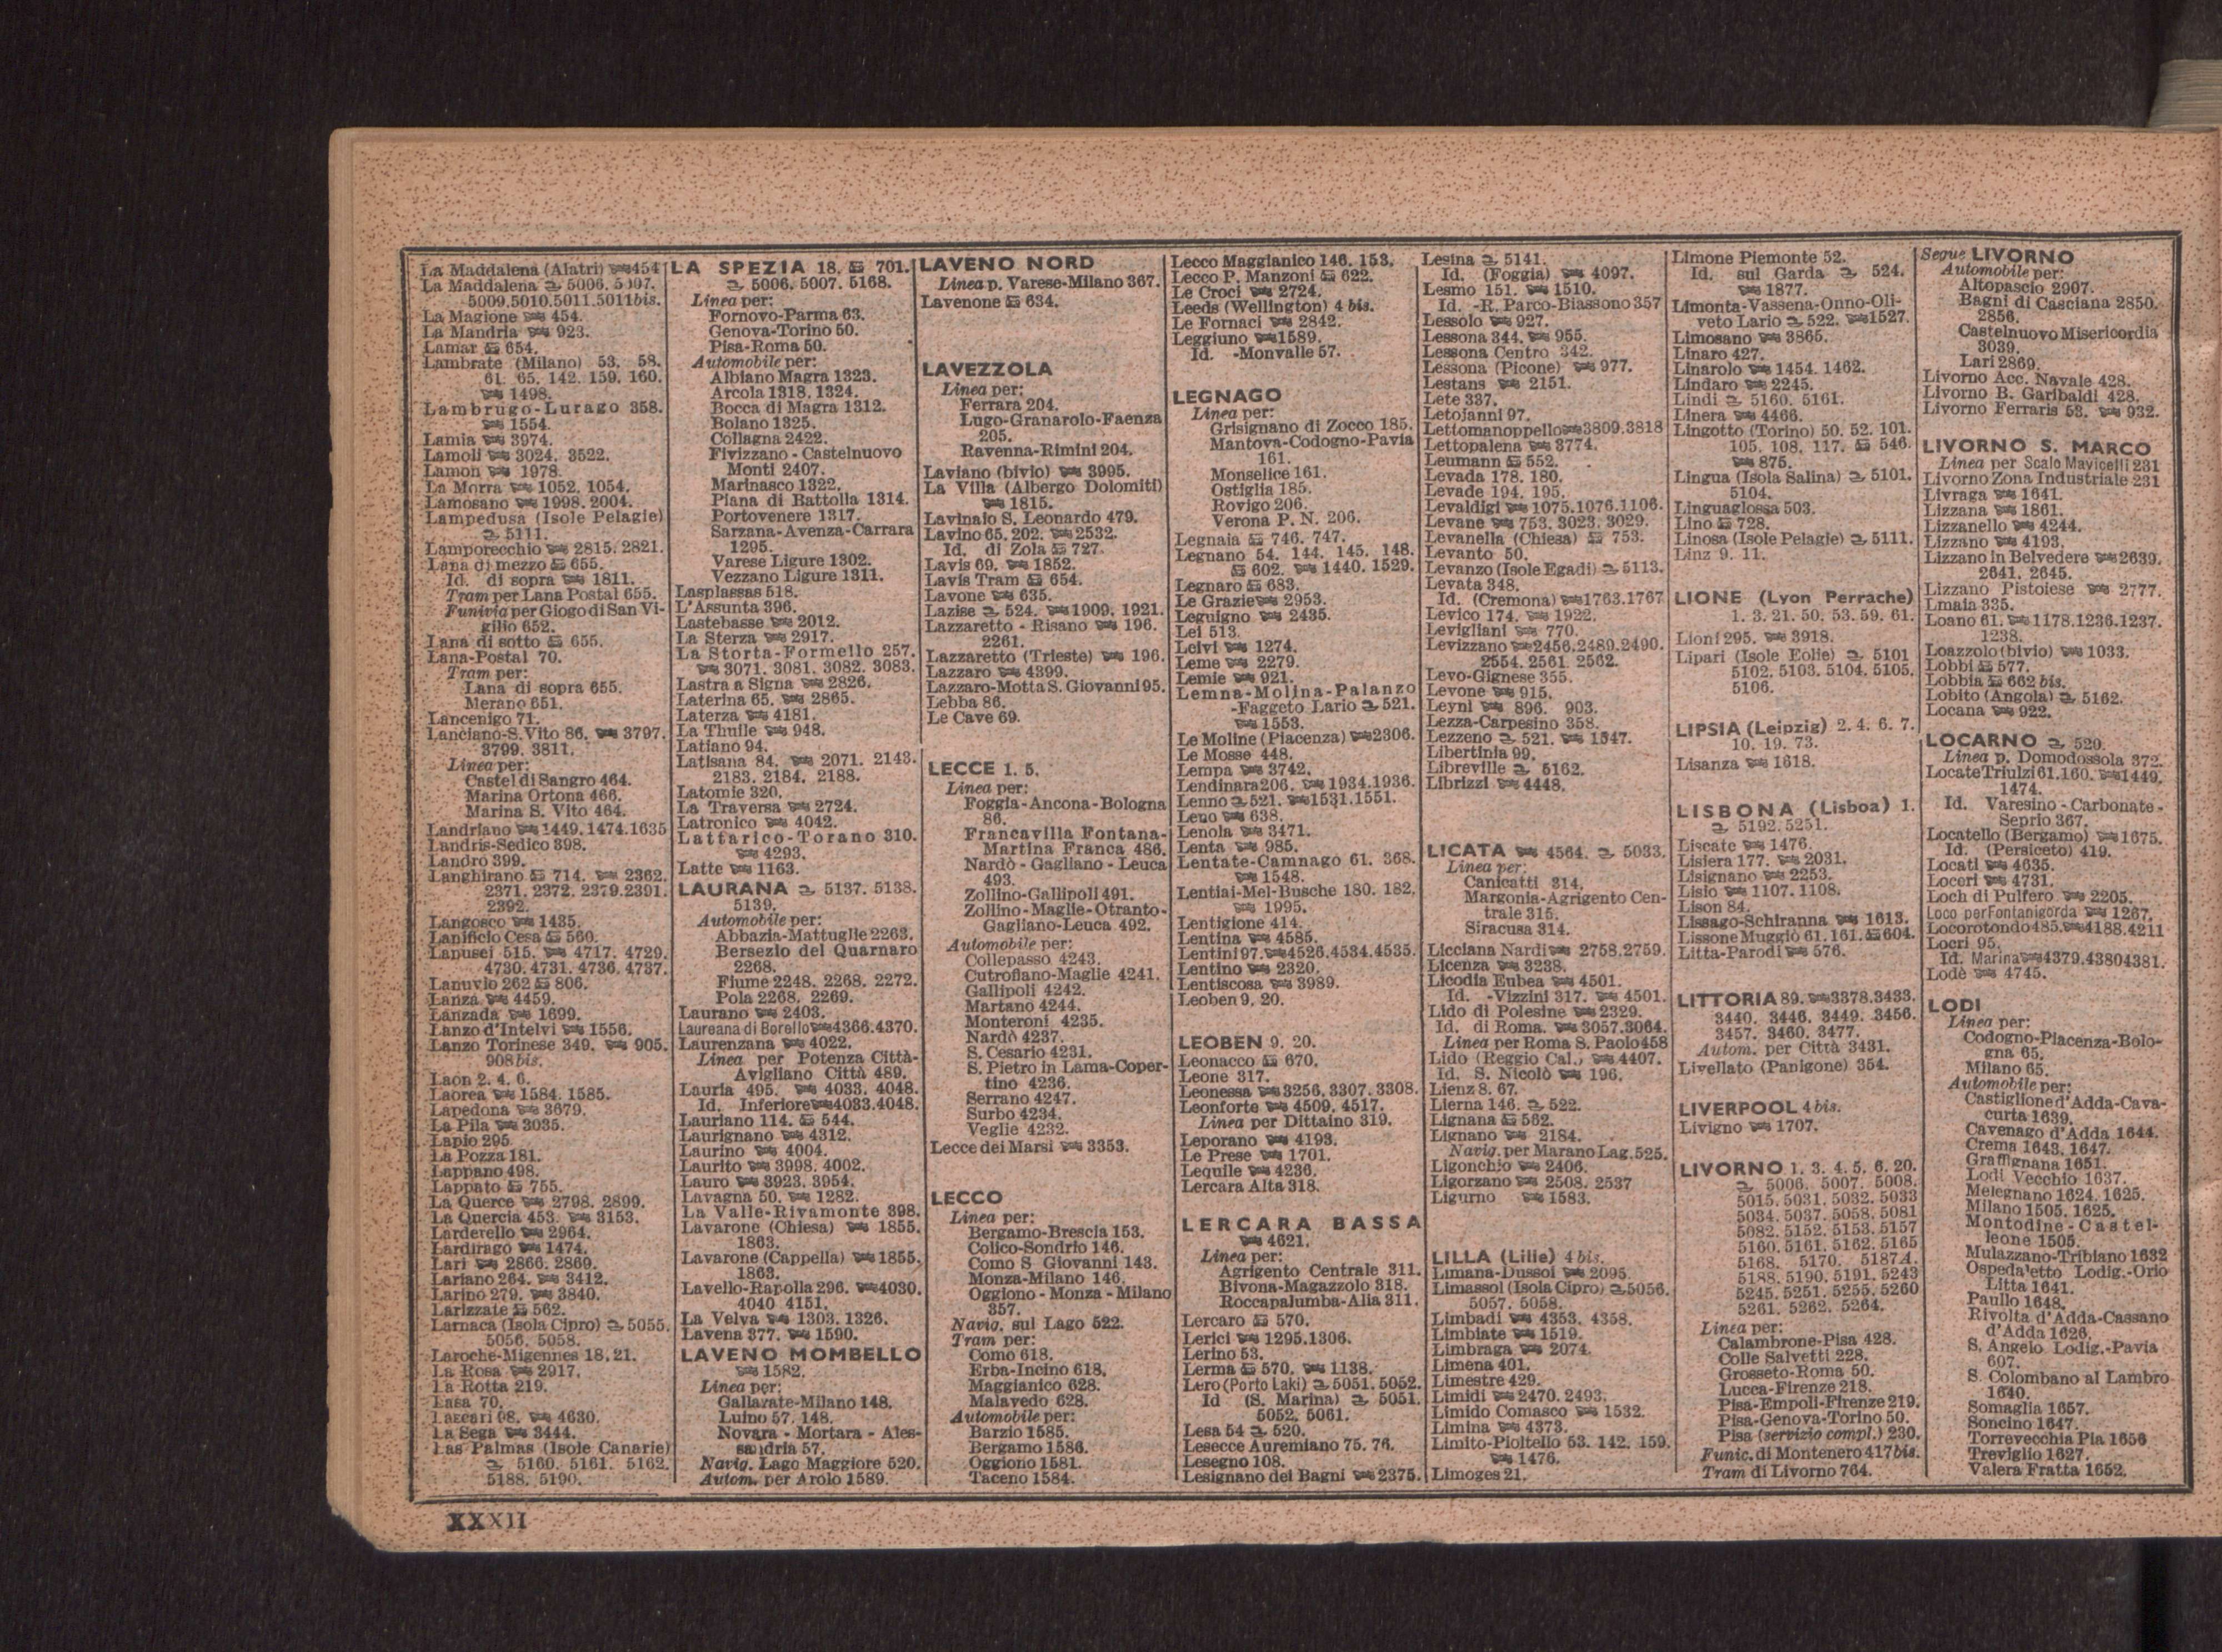 La Maddalena (Alatri) 454
La Maddalena 5006. 5007.
5009.5010.5011.5011bis.
La Magione 454.
La Mandria 923.
Lamar 654.
Lambrate (Milano) 53. 58.
61. 65. 142. 159. 160.
1498.
Lambrugo-Lurago 358.
1554.
Lamia 3974.
Lamoli 3024. 3522.
Lamon 1978.
La Morra 1052. 1054.
Lamosano 1998. 2004.
Lampedusa (Isole Pelagie)
5111.
Lamporecchio 2815. 2821.
Lana di mezzo 655.
Id. di sopra 1811.
Tram per Lana Postal 655.
Funivia per Giogo di San Vi-
gilio 652.
Lana di sotto 655.
Lana-Postal 70.
Tram per:
Lana di sopra 655.
Merano 651.
Lancenigo 71.
Lanciano-S.Vito 86. 3797.
3799. 3811.
Linea per:
Castel di Sangro 464.
Marina Ortona 466.
Marina S. Vito 464.
Landriano 1449.1474.1635
Landris-Sedico 398.
Landro 399.
Langhirano 714. 2362.
2371. 2372. 2379.2391.
2392.
Langosco 1435.
Lanificio Cesa 560.
Lanusei 515. 4717. 4729.
4730. 4731. 4736. 4737.
Lanuvio 262 806.
Lanza 4459.
Lanzada 1699.
Lanzo d'Intelvi 1556.
Lanzo Torinese 349. 905.
908bis.
Laon 2. 4. 6.
Laorea 1584. 1585.
Lapedona 3679.
La Pila 3035.
Lapio 295
La Pozza 181.
Lappano 498.
Lappato 755.
La Querce 2798. 2899.
La Quercia 453. 3153.
Larderello 2964.
Lardirago 1474.
Lari 2866. 2869.
Lariano 264. 3412.
Larino 279. 3840.
Larizzate 562.
Larnaca (Isola Cipro) 5055.
5056. 5058.
Laroche-Migennes 18.21.
La Rosa 2917.
La Rotta 219.
Lasa 70.
Lascari 98. 4630.
La Sega 3444.
Las Palmas (Isole Canarie)
5160. 5161. 5162.
5188. 5190.
LA SPEZIA 18. 701.
5006. 5007. 5168.
Linea per:
Fornovo-Parma 63.
Genova-Torino 50.
Pisa-Roma 50.
Automobile per:
Albiano Magra 1323.
Arcola 1318. 1324.
Bocca di Magra 1312.
Bolano 1325.
Collagna 2422.
Fivizzano - Castelnuovo
Monti 2407.
Marinasco 1322.
Piana di Battolla 1314.
Portovenere 1317.
Sarzana-Avenza-Carrara
1295.
Varese Ligure 1302.
Vezzano Ligure 1311.
Lasplassas 518.
L'Assunta 396.
Lastebasse 2012.
La Sterza 2917.
La Storta-Formello 257.
3071. 3081. 3082. 3083.
Lastra a Signa 2826.
Laterina 65. 2865.
Laterza 4181.
La Thuile 948.
Latiano 94.
Latisana 84. 2071. 2143.
2183. 2184. 2188.
Latomie 320.
La Traversa 2724.
Latronico 4042.
Lattarico-Torano 310.
4293.
Latte 1163.
LAURANA 5137. 5138.
5139.
Automobile per:
Abbazia-Mattuglie 2263.
Bersezio del Quarnaro
2268.
Fiume 2248. 2268. 2272.
Pola 2268. 2269.
Laurano 2403.
Laureana di Borello 4366.4370.
Laurenzana 4022.
Linea per Potenza Città-
Avigliano Città 489.
Lauria 495. 4033. 4048.
Id. Inferiore 4033.4048.
Lauriano 114. 544.
Laurignano 4312.
Laurino 4004.
Laurito 3998. 4002.
Lauro 3923. 3954.
Lavagna 50. 1282.
La Valle-Rivamonte 398.
Lavarone (Chiesa) 1855.
1863.
Lavarone (Cappella) 1855.
1863.
Lavello-Rapolla 296. 4030.
4040 4151.
La Velva 1303. 1326.
Lavena 377. 1590.
LAVENO MOMBELLO
1582.
Linea per:
Gallarate-Milano 148.
Luino 57. 148.
Novara - Mortara - Ales-
sandria 57.
Navig. Lago Maggiore 520.
Autom. per Arolo 1589.
LAVENO NORD
Linea p. Varese-Milano 367.
Lavenone 634.
LAVEZZOLA
Linea per:
Ferrara 204.
Lugo-Granarolo-Faenza
205.
Ravenna-Rimini 204.
Laviano (bivio) 3995.
La Villa (Albergo Dolomiti)
1815.
Lavinaio S. Leonardo 479.
Lavino 65. 202. 2532.
Id. di Zola 727.
Lavis 69. 1852.
Lavis Tram 654.
Lavone 635.
Lazise 524. 1909. 1921.
Lazzaretto - Risano 196.
2261.
Lazzaretto (Trieste) 196.
Lazzaro 4399.
Lazzaro-Motta S. Giovanni 95.
Lebba 86.
Le Cave 69.
LECCE 1. 5.
Linea per:
Foggia-Ancona-Bologna
86.
Francavilla Fontana-
Martina Franca 486.
Nardò - Gagliano - Leuca
493.
Zollino-Gallipoli 491.
Zollino-Maglie-Otranto-
Gagliano-Leuca 492.
Automobile per:
Collepasso 4243.
Cutrofiano-Maglie 4241.
Gallipoli 4242.
Martano 4244.
Monteroni 4235.
Nardò 4237.
S. Cesario 4231.
S. Pietro in Lama-Coper-
tino 4236.
Serrano 4247.
Surbo 4234.
Veglie 4232.
Lecce dei Marsi 3353.
LECCO
Linea per:
Bergamo-Brescia 153.
Colico-Sondrio 146.
Como S Giovanni 143.
Monza-Milano 146.
Oggiono - Monza - Milano
357.
Navig. sul Lago 522.
Tram per:
Como 618.
Erba-Incino 618.
Maggianico 628.
Malavedo 628.
Automobile per:
Barzio 1585.
Bergamo 1586.
Oggiono 1581.
Taceno 1584.
Lecco Maggianico 146. 153.
Lecco P. Manzoni 622.
Le Croci 2724.
Leeds (Wellington) 4 bis.
Le Fornaci 2842.
Leggiuno 1589.
Id. -Monvalle 57.
LEGNAGO
Linea per:
Grisignano di Zocco 185.
Mantova-Codogno-Pavia
161.
Monselice 161.
Ostiglia 185.
Rovigo 206.
Verona P. N. 206.
Legnaia 746. 747.
Legnano 54. 144. 145. 148.
602. 1440. 1529.
Legnaro 683.
Le Grazie 2953.
Leguigno 2435.
Lei 513.
Leivi 1274.
Leme 2279.
Lemie 921.
Lemna-Molina-Palanzo
-Faggeto Lario 521.
1553.
Le Moline (Piacenza) 2306.
Le Mosse 448.
Lempa 3742.
Lendinara 206. 1934.1936.
Lenno 521. 1531.1551.
Leno 638.
Lenola 3471.
Lenta 985.
Lentate-Camnago 61. 368.
1548.
Lentiai-Mel-Busche 180. 182.
1995.
Lentigione 414.
Lentina 4585.
Lentini 97. 4526.4534.4535.
Lentino 2320.
Lentiscosa 3989.
Leoben 9. 20.
LEOBEN 9. 20.
Leonacco 670.
Leone 317.
Leonessa 3256. 3307. 3308.
Leonforte 4509. 4517.
Linea per Dittaino 319.
Leporano 4193.
Le Prese 1701.
Lequile 4236.
Lercara Alta 318.
LERCARA BASSA
4621.
Linea per:
Agrigento Centrale 311.
Bivona-Magazzolo 318.
Roccapalumba-Alia 311.
Lercaro 570.
Lerici 1295.1306.
Lerino 53.
Lerma 570. 1138.
Lero (Porto Laki) 5051. 5052.
Id (S. Marina) 5051.
5052. 5061.
Lesa 54 520.
Lesecce Auremiano 75. 76.
Lesegno 108.
Lesignano dei Bagni 2375.
Lesina 5141.
Id. (Foggia) 4097.
Lesmo 151. 1510.
Id. -R. Parco-Biassono 357
Lessolo 927.
Lessona 344. 955.
Lessona Centro 342.
Lessona (Picone) 977.
Lestans 2151.
Lete 337.
Letojanni 97.
Lettomanoppello 3809.3818
Lettopalena 3774.
Leumann 552.
Levada 178. 180.
Levade 194. 195.
Levaldigi 1075.1076.1106.
Levane 753. 3023. 3029.
Levanella (Chiesa) 753.
Levanto 50.
Levanzo (Isole Egadi) 5113.
Levata 348.
Id. (Cremona) 1763.1767
Levico 174. 1922.
Levigliani 770.
Levizzano 2456.2489.2490.
2554. 2561. 2562.
Levo-Gignese 355.
Levone 915.
Leynì 896. 903.
Lezza-Carpesino 358.
Lezzeno 521. 1547.
Libertinia 99.
Libreville 5162.
Librizzi 4448.
LICATA 4564. 5033.
Linea per:
Canicattì 314.
Margonia-Agrigento Cen-
trale 315.
Siracusa 314.
Licciana Nardi 2758.2759.
Licenza 3238.
Licodia Eubea 4501.
Id. -Vizzini 317. 4501.
Lido di Polesine 2329.
Id. di Roma. 3057.3064.
Linea per Roma S. Paolo 458
Lido (Reggio Cal.) 4407.
Id. S. Nicolò 196.
Lienz 8. 67.
Lierna 146. 522.
Lignana 562.
Lignano 2184.
Navig. per Marano Lag. 525.
Ligonchio 2406.
Ligorzano 2508. 2537
Ligurno 1583.
LILLA (Lille) 4 bis.
Limana-Dussoi 2095.
Limassol (Isola Cipro) 5056.
5057. 5058.
Limbadi 4353. 4358.
Limbiate 1519.
Limbraga 2074.
Limena 401.
Limestre 429.
Limidi 2470. 2493.
Limido Comasco 1532.
Limina 4373.
Limito-Pioltello 53. 142. 159.
1476.
Limoges 21.
Limone Piemonte 52.
Id. sul Garda 524.
1877.
Limonta-Vassena-Onno-Oli-
veto Lario 522. 1527.
Limosano 3865.
Linaro 427.
Linarolo 1454. 1462.
Lindaro 2245.
Lindi 5160. 5161.
Linera 4466.
Lingotto (Torino) 50. 52. 101.
105. 108. 117. 546.
875.
Lingua (Isola Salina) 5101.
5104.
Linguaglossa 503.
Lino 728.
Linosa (Isole Pelagie) 5111.
Linz 9. 11.
LIONE (Lyon Perrache)
1. 3. 21. 50. 53. 59. 61.
Lioni 295. 3918.
Lipari (Isole Eolie) 5101
5102. 5103. 5104. 5105.
5106.
LIPSIA (Leipzig) 2. 4. 6. 7.
10. 19. 73.
Lisanza 1618.
LISBONA (Lisboa) 1.
5192. 5251.
Liscate 1476.
Lisiera 177. 2031.
Lisignano 2253.
Lisio 1107. 1108.
Lison 84.
Lissago-Schiranna 1613.
Lissone Muggiò 61. 161. 604.
Litta-Parodi 576.
LITTORIA 89. 3378.3433.
3440. 3446. 3449. 3456.
3457. 3460. 3477.
Autom. per Città 3431.
Livellato (Panigone) 354.
LIVERPOOL 4 bis.
Livigno 1707.
LIVORNO 1. 3. 4. 5. 6. 20.
5006. 5007. 5008.
5015. 5031. 5032. 5033
5034. 5037. 5058. 5081
5082. 5152. 5153. 5157
5160. 5161. 5162. 5165
5168. 5170. 5187A.
5188. 5190. 5191. 5243
5245. 5251. 5255. 5260
5261. 5262. 5264.
Linea per:
Calambrone-Pisa 428.
Colle Salvetti 228.
Grosseto-Roma 50.
Lucca-Firenze 218.
Pisa-Empoli-Firenze 219.
Pisa-Genova-Torino 50.
Pisa (servizio compl.) 230.
Funic. di Montenero 417bis.
Tram di Livorno 764.
Segue LIVORNO
Automobile per:
Altopascio 2907.
Bagni di Casciana 2850.
2856.
Castelnuovo Misericordia
3039.
Lari 2869.
Livorno Acc. Navale 428.
Livorno B. Garibaldi 428.
Livorno Ferraris 53. 932.
LIVORNO S. MARCO
Linea per Scalo Mavicelli 231
Livorno Zona Industriale 231
Livraga 1641.
Lizzana 1861.
Lizzanello 4244.
Lizzano 4193.
Lizzano in Belvedere 2639.
2641. 2645.
Lizzano Pistoiese 2777.
Lmaia 335.
Loano 61. 1178.1236.1237.
1238.
Loazzolo (bivio) 1033.
Lobbi 577.
Lobbia 662 bis.
Lobito (Angola) 5162.
Locana 922.
LOCARNO 520.
Linea p. Domodossola 372.
Locate Triulzi 61.160. 1449.
1474.
Id. Varesino - Carbonate -
Seprio 367.
Locatello (Bergamo) 1675.
Id. (Persiceto) 419.
Locati 4635.
Loceri 4731.
Loch di Pulfero 2205.
Loco per Fontanigorda 1267.
Locorotondo 485. 4188.4211
Locri 95.
Id. Marina 4379.43804381.
Lodè 4745.
LODI
Linea per:
Codogno-Piacenza-Bolo-
gna 65.
Milano 65.
Automobile per:
Castiglione d'Adda-Cava-
curta 1639.
Cavenago d'Adda 1644.
Crema 1643. 1647.
Graffignana 1651.
Lodi Vecchio 1637.
Melegnano 1624. 1625.
Milano 1505. 1625.
Montodine - Castel-
leone 1505.
Mulazzano-Tribiano 1632
Ospedaletto Lodig.-Orio
Litta 1641.
Paullo 1648.
Rivolta d'Adda-Cassano
d'Adda 1626.
S. Angelo Lodig.-Pavia
607.
S. Colombano al Lambro
1640.
Somaglia 1657.
Soncino 1647.
Torrevecchia Pia 1656
Treviglio 1627.
Valera Fratta 1652.
XXXII